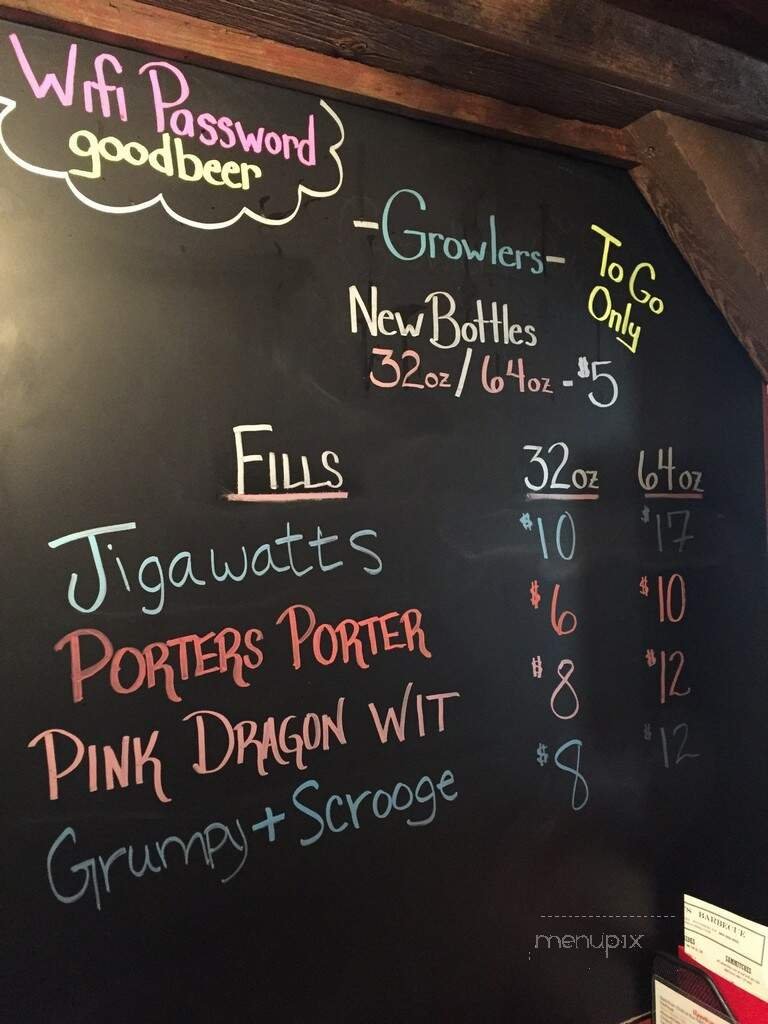 Wifi Password
goodbeer
-Growlers-
To Go
Only
New Bottles
32oz/64oz - $5
FILLS 32oz 64oz
Jigawatts $10 $17
PORTERS PORTER $6 $10
PINK DRAGON WIT $8 $12
Grumpy + Scrooge $8 $12
S BARBECUE
menupix